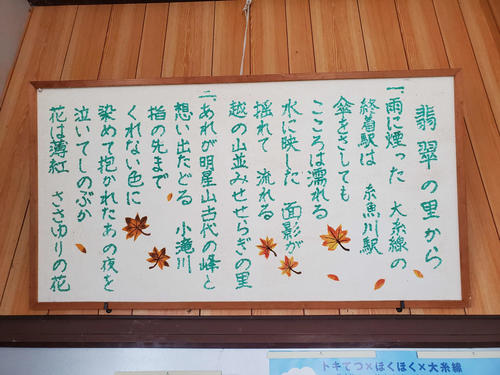 翡翠の里から
一、雨に煙った 大糸線の
終着駅は 糸魚川駅
傘をさしても
こころは濡れる
水に映した 面影が
揺れて 流れる
越の山並みせせらぎの里
二、あれが明星山古代の峰と
想い出たどる 小滝川
指の先まで
くれない色に
染めて抱かれたあの夜を
泣いてしのぶか
花は薄紅 ささゆりの花
トキてつ×ほくほく×大糸線